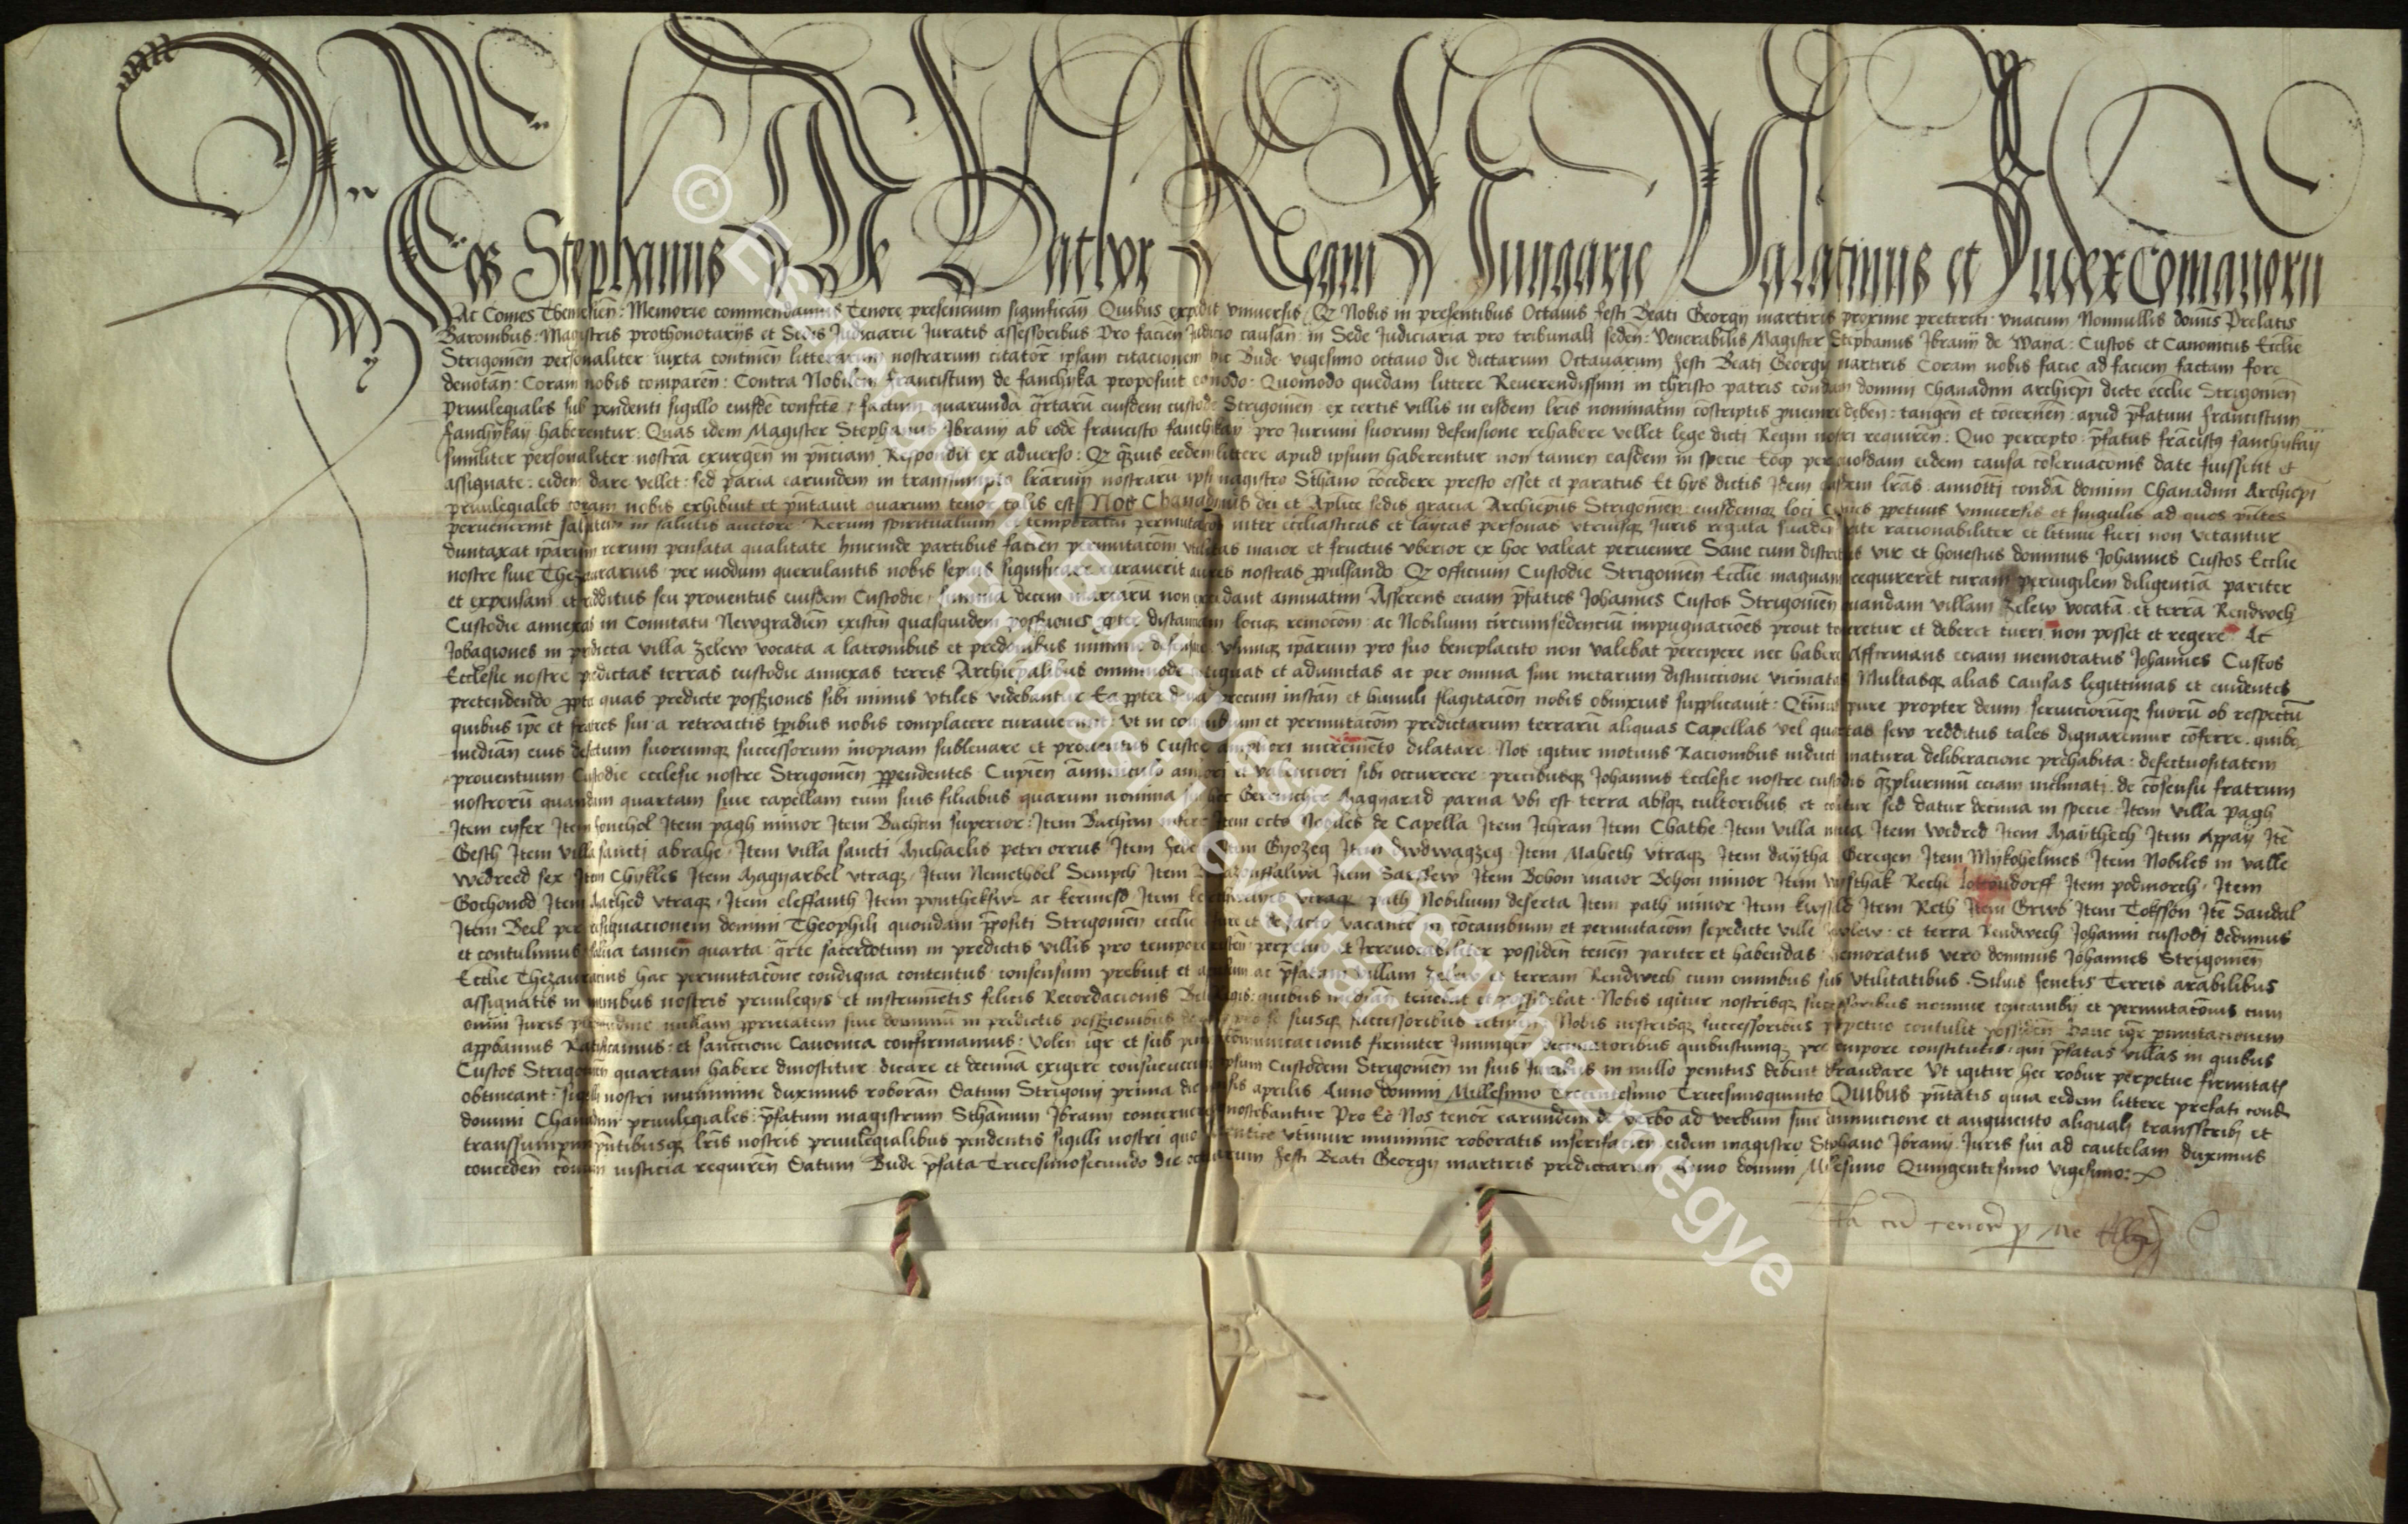 Nos Stephanus De Bathor Regni Hungarie Palatinus et Iudex Comanorū
Ac Comes Themesien̄: Memorie commendamus Tenore presencium significan̄ Quibus expedit vniuersis Qz Nobis in presentibus Octauis festi Beati Georgy martiris proxime preteriti vnacum Nonnullis domīs Prelatis
Baronibus: Magistris prothonotarijs et Sedis Judiciarie Juratis assessoribus Pro facien̄ Judicio causan̄ in Sede Judiciaria pro tribunali seden̄: Venerabilis Magister Stephanus Ibrany de Waya: Custos et Canonicus Ecclīe
Strigonien̄ personaliter iuxta continen̄ litterarum nostrarum citator̄ ipsam citacionem hic Bude vigesimo octauo die dictarum Octauarum festi Beati Georgy martiris Coram nobis facie ad faciem factam fore
denotan̄: Coram nobis comparen̄: Contra Nobilem Franciscum de fanchyka proposuit eomodo: Quomodo quedam littere Reuerendissimi in christo patris condam domini Chanadini archiepi dicte ecclīe Strigonien̄
priuilegiales sub pendenti sigillo eiusdē confecte: factum quarundā q̄rtarū eiusdem custodie Strigonien̄ ex certis villis in eisdem lrīs nominatim cōscriptis puenire deben̄: tangen̄ et cōcernen̄: apud p̄fatum franciscum
fanchykay haberentur: Quas idem Magister Stephanus Ibrany ab eodē francisco fanchykay pro Jurium suorum defensione rehabere vellet lege dicti Regni nostri requiren̄: Quo percepto p̄fatus frāciscꝰ fanchykay
similiter personaliter nostrā exurgen̄ in pn̄ciam Respondit ex aduerso: Qz q̄uis eedem littere apud ipsum haberentur non tamen easdem in specie eo qz per quosdam eidem causa cōseruacōnis date fuissent et
assignate: eidem dare vellet: sed paria earundem in transsumpto lrārum nostrarū ipsi magistro Sthāno cōcedere presto esset et paratus Et hys dictis Idem easdem lrās annotti condā domini Chanadini Archiepi
priuilegiales coram nobis exhibuit et pn̄tauit quarum tenor talis est Nos Chanadinus dei et Aplice sedis gracia Archiepus Strigonien̄ eiusdemqz loci Comes ppetuus Vniuersis et singulis ad quos pn̄tes
peruenerint salutem in salutis auctore Rerum spiritualium et temporalium permutacio inter ecclīasticas et laycas personas vtriusqz Juris regula suaden̄ rite racionabiliter et licitue fieri non vetantur
duntaxat ip̄arum rerum pensata qualitate hincinde partibus facien̄ permutacōm vtilitas maior et fructus vberior ex hoc valeat peruenire Sane cum discretus vir et honestus dominus Johannes Custos Ecclīe
nostre siue Thezaurarius per modum querulantis nobis sepius significare curauerit aures nostras ppulsando Qz officium Custodie Strigonien̄ Ecclīe magnam requireret curam peruigilem diligenciā pariter
et expensam et redditus seu prouentus eiusdem Custodie summā decem marcarū non excedant annuatim Asserens eciam p̄fatus Johannes Custos Strigonien̄ quandam villam Zelew vocatā et terrā Kendwech
Custodie annexas in Comitatu Newgradien̄ existen̄ quasquidem poss̄iones ppter distanciam lociqz remocōm ac Nobilium circumsedencium impugnacōes prout teneretur et deberet tueri non posset et regere Ac
Jobagiones in predicta villa Zelew vocata a latronibus et predonibus minime defensare vsumqz ip̄arum pro suo beneplacito non valebat percipere nec habere Affirmans eciam memoratus Johannes Custos
Ecclesie nostre predictas terras custodie annexas terris Archiepalibus omnimode contiguas et adiunctas ac per omnia sine metarum distinccione vicinatas Multasqz alias causas legittimas et euidentes
pretendendo ppter quas predicte poss̄iones sibi minus vtiles videbantur Ea ppter deuota precum instan̄ et humili flagitacōn nobis obnixius supplicauit: Qtinus pure propter deum seruiciorūqz suorū ob respectū
quibus ip̄e et fratres sui a retroactis tp̄ibus nobis complacere curauerunt vt in concambium et permutacōm predictarum terrarū aliquas Capellas vel quartas sew redditus tales dignaremur cōferre quibꝰ
median̄ eius defectum suorumqz successorum inopiam subleuare et prouentus Custodie ampliori incremēto dilatare Nos igitur motiuis Racionibus inducti matura deliberacione prehabita: defectuositatem
prouentuum Custodie ecclesie nostre Strigonien̄ ppendentes Cupien̄ amminiculo ampliori et validiori sibi occurrere precibusqz Johannis Ecclesie nostre custodis q̄mplurimū eciam inclinati de cōsensu fratrum
nostrorū quandam quartam siue capellam cum suis filiabus quarum nomina sunt hec Geremcher Magyarad parua vbi est terra absqz cultoribus et colitur sed datur decima in specie Item villa Pagh
Item cyfer Item sonchol Item pagh minor Item Bachon superior: Item Bachon inferior Item octo Nobiles de Capella Item Ichran Item Chathe Item villa noua Item wedred Item Maythech Item Appay Itē
Gesth Item villa sancti abrahe Item villa sancti Michaelis petri orrus Item Item Gyozeg Item dwdwagzeg Item Mabeth vtraqz Item daytha Geregen Item Mykohelmes Item Nobiles in valle
wedreed sex Item Chykles Item Magyarbel vtraqz Item Nemethbel Sempch Item Item Item Behon maior Behon minor Item Reche Item podmorch Item
Gochonod Item vtraqz Item eleffanth Item ponthekswr ac kermesd Item vtraqz path Nobilium deserta Item path minor Item Item Reth Item Grws Item Tokssōn Itē Sandal
Item Beel per resignacionem domini Theophili quondam p̄positi Strigonien̄ ecclīe iure et de facto vacantem in cōcambium et permutacōm sepedicte ville Zelew et terra Kendwech Johanni custodi dedimus
et contulimus salua tamen quarta q̄rte sacerdotum in predictis villis pro tempore existen̄ perpetuo et Irreuocabiliter possiden̄ tenen̄ pariter et habendas memoratus vero dominus Johannes Strigonien̄
Ecclīe Thezaurarius hac permutacōne condigna contentus consensum prebuit et assensum ac p̄fatam villam Zelew et terram Kendwech cum omnibus suis vtilitatibus Siluis fenetis Terris arabilibus
assignatis in manibus nostris priuilegys et instrumētis felicis Recordacionis Bele Regis: quibus median̄ tenebat et possidebat Nobis igitur nostrisqz successoribus nomine concamby et permutacōnis cum
omni Juris plenitudine nullam pprietatem siue dominium in predictis poss̄ionibus pro se suisqz successoribus retinen̄ Nobis nostrisqz successoribus ppetuo contulit possiden̄ Hanc igr̄ pmutacionem
appbamus Ratificamus et sanccione Canonica confirmamus: Volen̄ igr̄ et sub pena excōmunicacionis firmiter Iniungen̄ Decimatoribus quibuscumqz pro tempore constitutis qui p̄fatas villas in quibus
Custos Strigonien̄ quartam habere dinoscitur dicare et decimā exigere consueuerunt ipsum Custodem Strigonien̄ in suis Juribus in nullo penitus debent fraudare Vt igitur hec robur perpetue firmitatis
obtineant sigilli nostri munimine duximus roboran̄ Datum Strigony prima die mensis aprilis Anno domini Millesimo Trecentesimo Tricesimoquinto Quibus pn̄tatis quia eidem littere prefati condā
domini Chanadini priuilegiales: p̄fatum magistrum Sthānum Ibrany concernere noscebantur Pro eo Nos tenōr earundem de verbo ad verbum sine diminucione et augmento aliquali transscribi et
transsumpmi pn̄tibusqz lrīs nostris priuilegialibus pendentis sigilli nostri quo vtimur munimine roboratis inserifacien̄ eidem magistro Stephano Ibrany Juris sui ad cautelam duximus
conceden̄ comūn iusticia requiren̄ Datum Bude p̄fata Tricesimosecundo die octauarum festi Beati Georgy martiris predictarum Anno domini Millesimo Quingentesimo vigesimo: